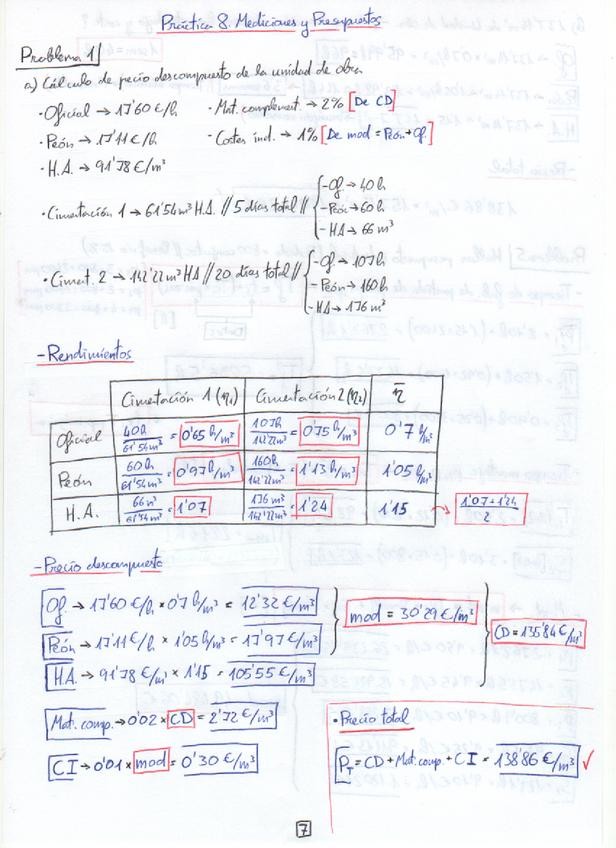 Práctica 8. Mediciones y Presupuestos
Problema 1
a) Cálculo de pecio descompuesto de la unidad de obra
· Oficial → 17'60 €/h · Mat. complement. → 2% [De CD]
· Peón → 17'11 €/h · Costes ind. → 1% [De mod = Peón + Of.]
· H.A. → 91'78 €/m³
· Cimentación 1 → 61'54 m³ H.A. // 5 días total //
- Of → 40 h
- Peón → 60 h
- HA → 66 m³
· Ciment. 2 → 142'22 m³ HA // 20 días total //
- Of → 107 h
- Peón → 160 h
- HA → 176 m³
- Rendimientos
Cimentación 1 (η₁) Cimentación 2 (η₂) η̄
Oficial 40h/61'54m³ = 0'65 h/m³ 107h/142'22m³ = 0'75 h/m³ 0'7 h/m³
Peón 60h/61'54m³ = 0'97 h/m³ 160h/142'22m³ = 1'13 h/m³ 1'05 h/m³
H.A. 66m³/61'54m³ = 1'07 176m³/142'22m³ = 1'24 1'15 → 1'07+1'24/2
- Precio descompuesto
Of. → 17'60 €/h × 0'7 h/m³ = 12'32 €/m³
mod = 30'29 €/m³
CD = 135'84 €/m³
Peón → 17'11 €/h × 1'05 h/m³ = 17'97 €/m³
HA → 91'78 €/m³ × 1'15 = 105'55 €/m³
Mat. comp. → 0'02 × CD = 2'72 €/m³
CI → 0'01 × mod = 0'30 €/m³
· Precio total
P_T = CD + Mat. comp. + CI = 138'86 €/m³ ✓
7